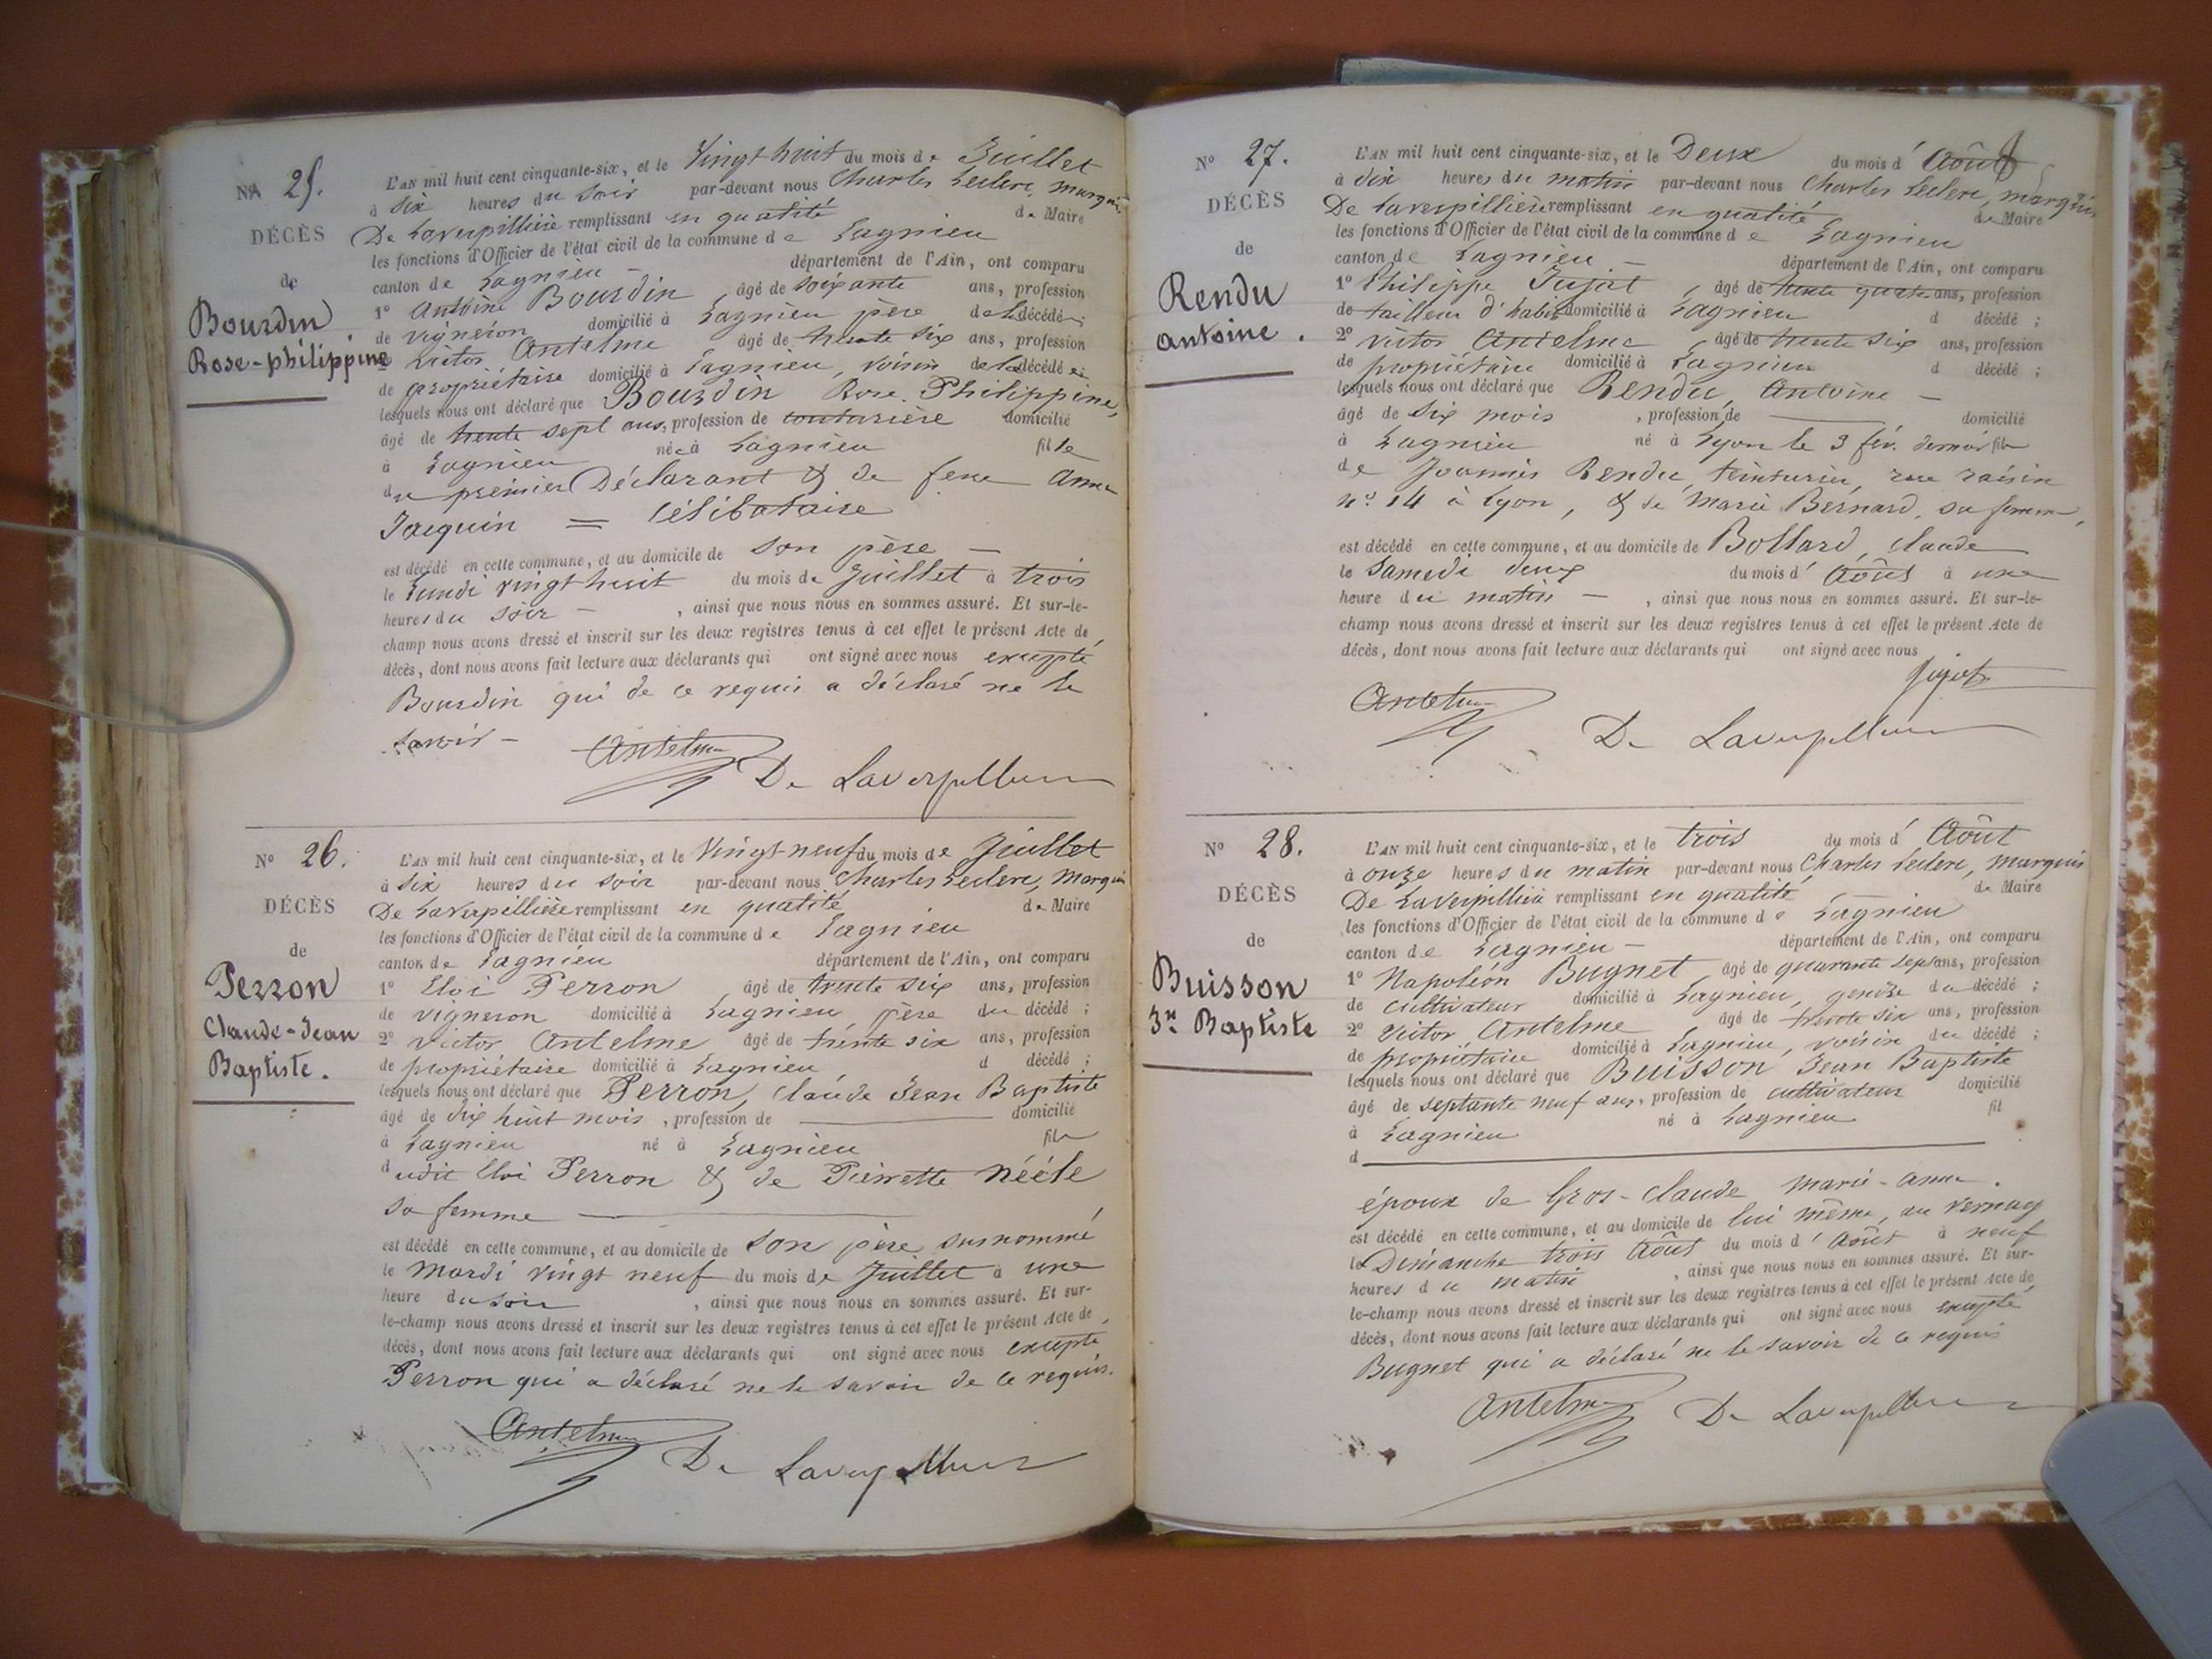 N° 25.
DÉCÈS
de
Bourdin
Rose-philippine
L'AN mil huit cent cinquante-six, et le Vingt huit du mois de Juillet
à six heures du soir par-devant nous Charles Leclerc, marquis
De Laverpillière remplissant en qualité de Maire
les fonctions d'Officier de l'état civil de la commune de Lagnieu
canton de Lagnieu – département de l'Ain, ont comparu
1° Antoine Bourdin, âgé de soixante ans, profession
de vigneron domicilié à Lagnieu père de la décédée;
2° Victor Antelme âgé de trente six ans, profession
de propriétaire domicilié à Lagnieu, voisin de la décédée;
lesquels nous ont déclaré que Bourdin Rose Philippine,
âgé de trente sept ans, profession de couturière domicilié
à Lagnieu née à Lagnieu fille
du premier Déclarant & de feue Anne
Jacquin = Célibataire
est décédé en cette commune, et au domicile de son père –
le Lundi vingt huit du mois de Juillet à trois
heures du soir – , ainsi que nous nous en sommes assuré. Et sur-le-
champ nous avons dressé et inscrit sur les deux registres tenus à cet effet le présent Acte de
décès, dont nous avons fait lecture aux déclarants qui ont signé avec nous excepté
Bourdin qui de ce requis a déclaré ne le
savoir –
Antelme De Laverpillière
N° 26.
DÉCÈS
de
Perron
Claude-Jean
Baptiste.
L'AN mil huit cent cinquante-six, et le Vingt-neuf du mois de Juillet
à six heures du soir par-devant nous Charles Leclerc, Marquis
De Laverpillière remplissant en qualité de Maire
les fonctions d'Officier de l'état civil de la commune de Lagnieu
canton de Lagnieu département de l'Ain, ont comparu
1° Eloi Perron âgé de trente six ans, profession
de vigneron domicilié à Lagnieu père du décédé;
2° Victor Antelme âgé de trente six ans, profession
de propriétaire domicilié à Lagnieu d décédé;
lesquels nous ont déclaré que Perron, Claude Jean Baptiste
âgé de dix huit mois, profession de domicilié
à Lagnieu né à Lagnieu fils
dudit Eloi Perron & de Pierrette Néèle
sa femme
est décédé en cette commune, et au domicile de son père surnommé
le Mardi vingt neuf du mois de Juillet à une
heure du soir, ainsi que nous nous en sommes assuré. Et sur-
le-champ nous avons dressé et inscrit sur les deux registres tenus à cet effet le présent Acte de
décès, dont nous avons fait lecture aux déclarants qui ont signé avec nous excepté
Perron qui a déclaré ne le savoir de ce requis.
Antelme De Laverpillière
N° 27.
DÉCÈS
de
Rendu
Antoine.
L'AN mil huit cent cinquante-six, et le Deux du mois d'Août
à dix heures du matin par-devant nous Charles Leclerc, marquis
De Laverpillière remplissant en qualité de Maire
les fonctions d'Officier de l'état civil de la commune de Lagnieu
canton de Lagnieu – département de l'Ain, ont comparu
1° Philippe Jujat, âgé de trente quatre ans, profession
de tailleur d'habits domicilié à Lagnieu d décédé;
2° Victor Antelme, âgé de trente six ans, profession
de propriétaire domicilié à Lagnieu d décédé;
lesquels nous ont déclaré que Rendu, Antoine –
âgé de six mois, profession de domicilié
à Lagnieu né à Lyon le 3 fév. dernier fils
de Joannis Rendu, teinturier, rue raisin
n° 14 à Lyon, & de Marie Bernard, sa femme,
est décédé en cette commune, et au domicile de Bollard, Claude
le Samedi deux du mois d'Août à une
heure du matin – , ainsi que nous nous en sommes assuré. Et sur-le-
champ nous avons dressé et inscrit sur les deux registres tenus à cet effet le présent Acte de
décès, dont nous avons fait lecture aux déclarants qui ont signé avec nous
Jujat
Antelme De Laverpillière
N° 28.
DÉCÈS
de
Buisson
Jn Baptiste
L'AN mil huit cent cinquante-six, et le trois du mois d'Août
à onze heures du matin par-devant nous Charles Leclerc, marquis
De Laverpillière remplissant en qualité de Maire
les fonctions d'Officier de l'état civil de la commune de Lagnieu
canton de Lagnieu – département de l'Ain, ont comparu
1° Napoléon Bugnet, âgé de quarante sept ans, profession
de cultivateur domicilié à Lagnieu, gendre du décédé;
2° Victor Antelme âgé de trente six ans, profession
de propriétaire domicilié à Lagnieu, voisin du décédé;
lesquels nous ont déclaré que Buisson Jean Baptiste
âgé de septante neuf ans, profession de cultivateur domicilié
à Lagnieu né à Lagnieu fil
d
époux de Gros-Claude Marie-Anne.
est décédé en cette commune, et au domicile de lui même, au Vernay
le Dimanche trois Août du mois d'Août à neuf
heures du matin, ainsi que nous nous en sommes assuré. Et sur-
le-champ nous avons dressé et inscrit sur les deux registres tenus à cet effet le présent Acte de
décès, dont nous avons fait lecture aux déclarants qui ont signé avec nous excepté
Bugnet qui a déclaré ne le savoir de ce requis
Antelme De Laverpillière